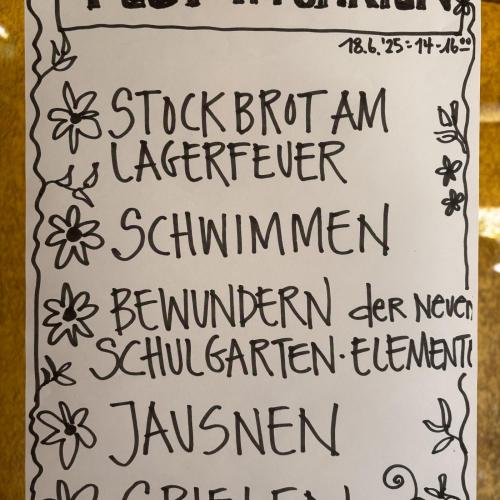 18.6.'25 = 14-16⁰⁰
STOCKBROT AM
LAGERFEUER
SCHWIMMEN
BEWUNDERN der neuen
SCHULGARTEN·ELEMENTE
JAUSNEN
SPIELEN